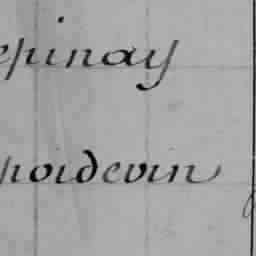 epinay
poidevin